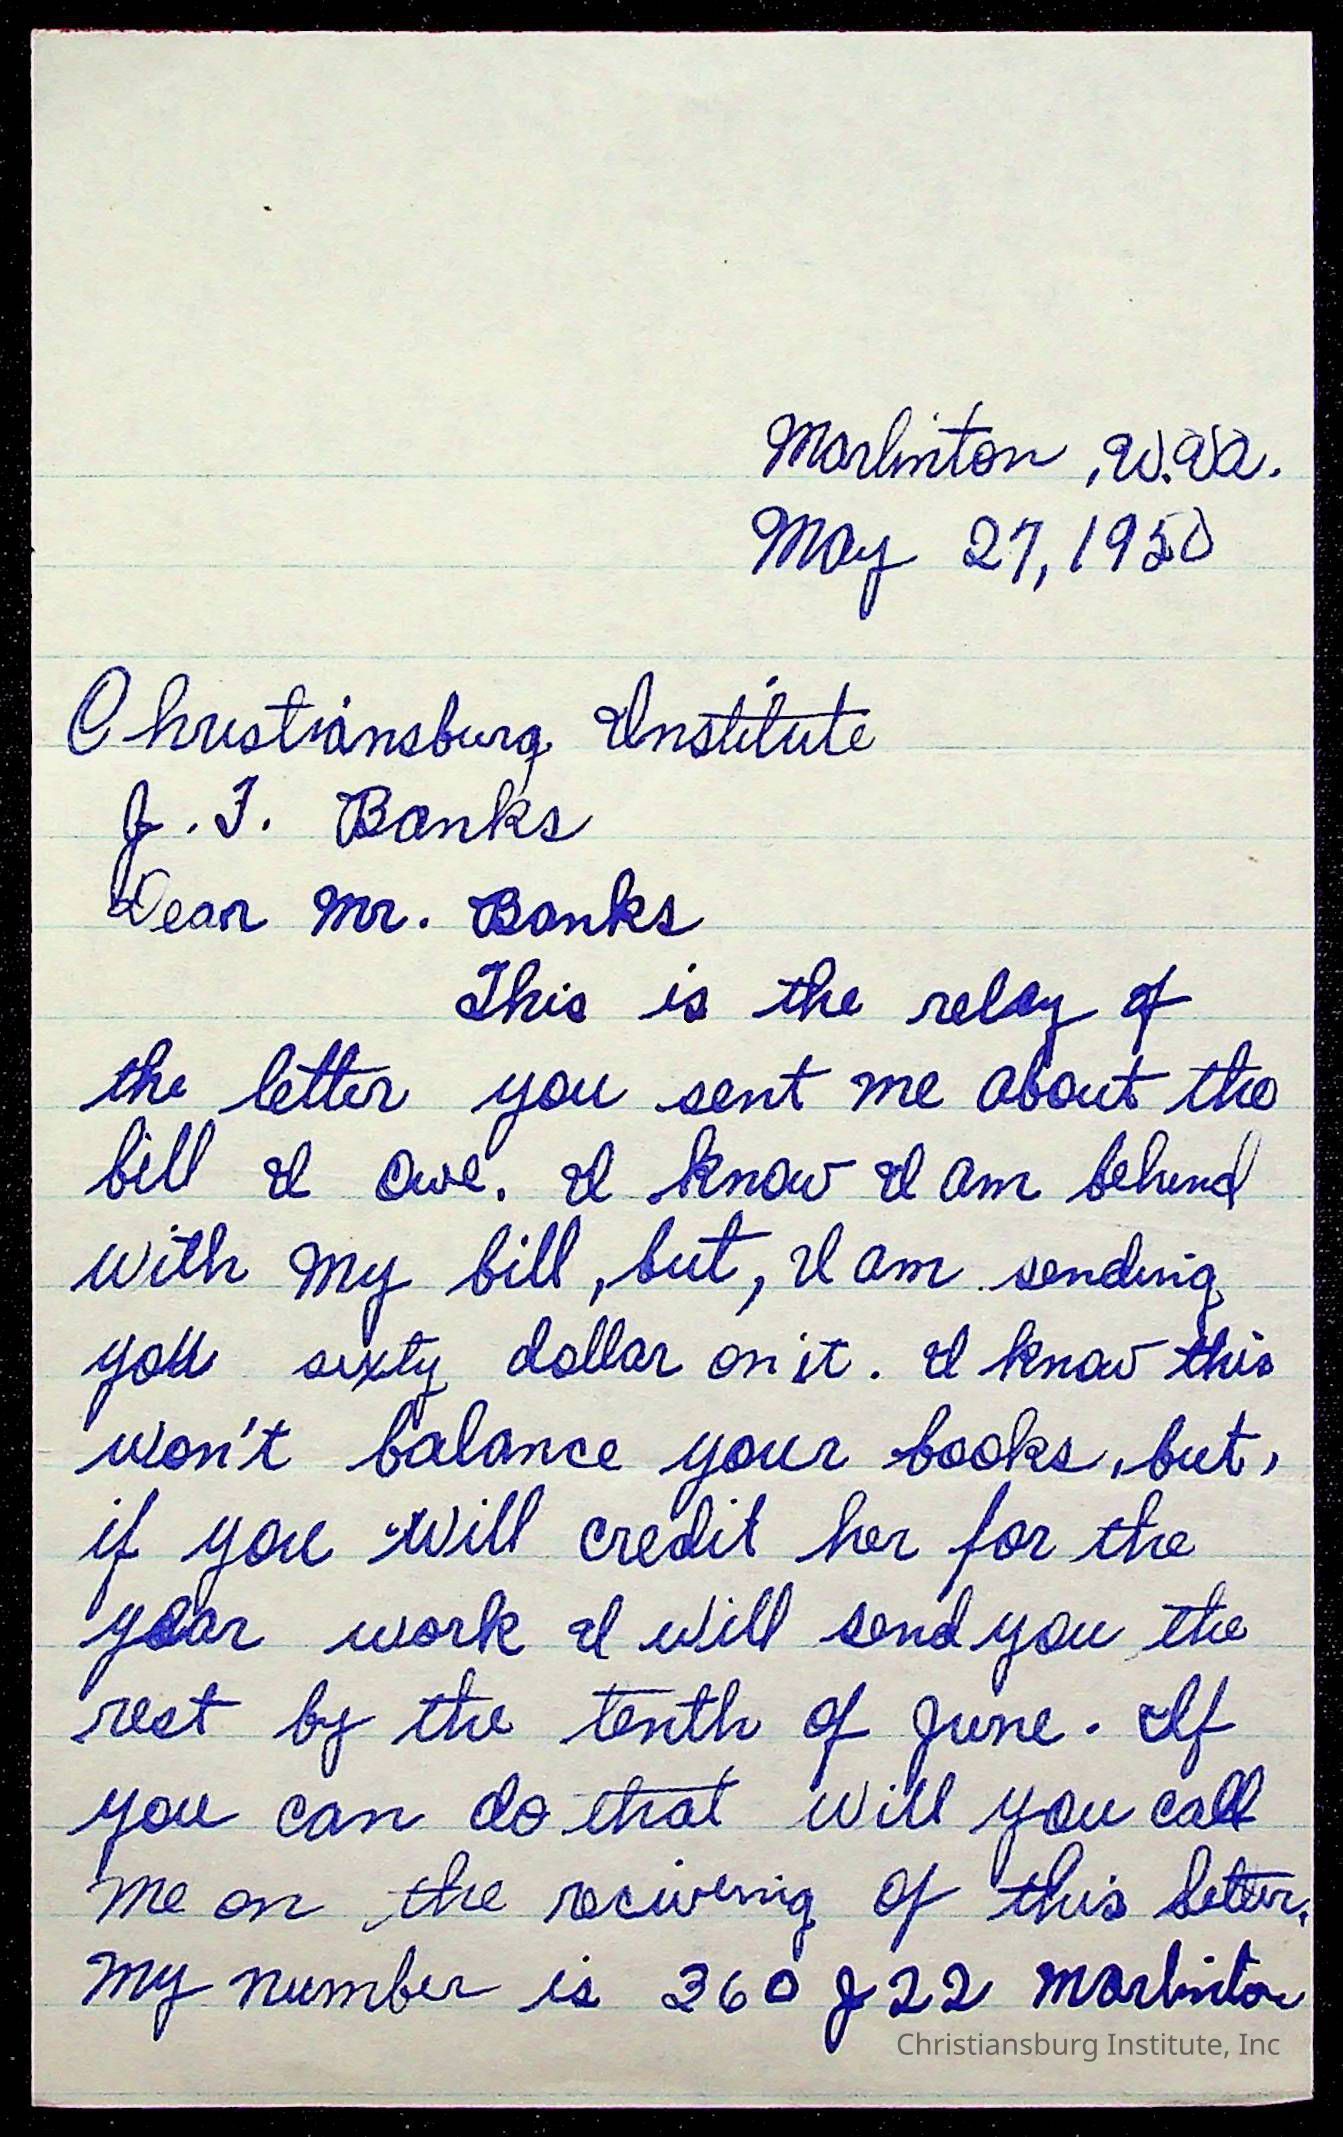 Marlinton, W.Va.
May 27, 1950
Christiansburg Institute
J. T. Banks
Dear Mr. Banks
This is the relay of
the letter you sent me about the
bill I owe. I know I am behind
with my bill, but, I am sending
you sixty dollar on it. I know this
won't balance your books, but,
if you will credit her for the
year work I will send you the
rest by the tenth of June. If
you can do that will you call
me on the reciveing of this letter.
My number is 360 J 22 Marlinton
Christiansburg Institute, Inc